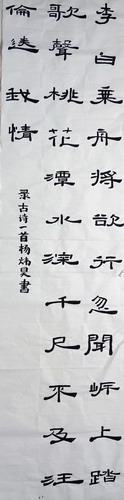 李白乗舟将欲行忽聞岍上踏
歌聲桃花潭水深千尺不及汪
倫送我情
录古诗一首杨炳昊書